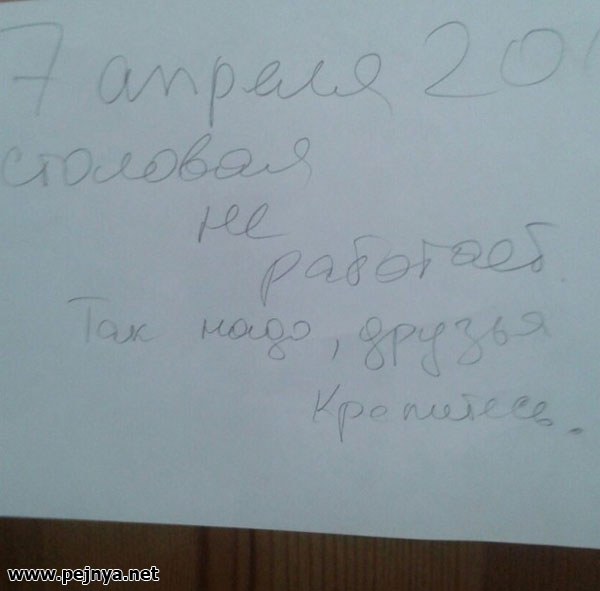 7 апреля 20
столовая
не
работает.
Так надо, друзья
Крепитесь.
www.pejnya.net